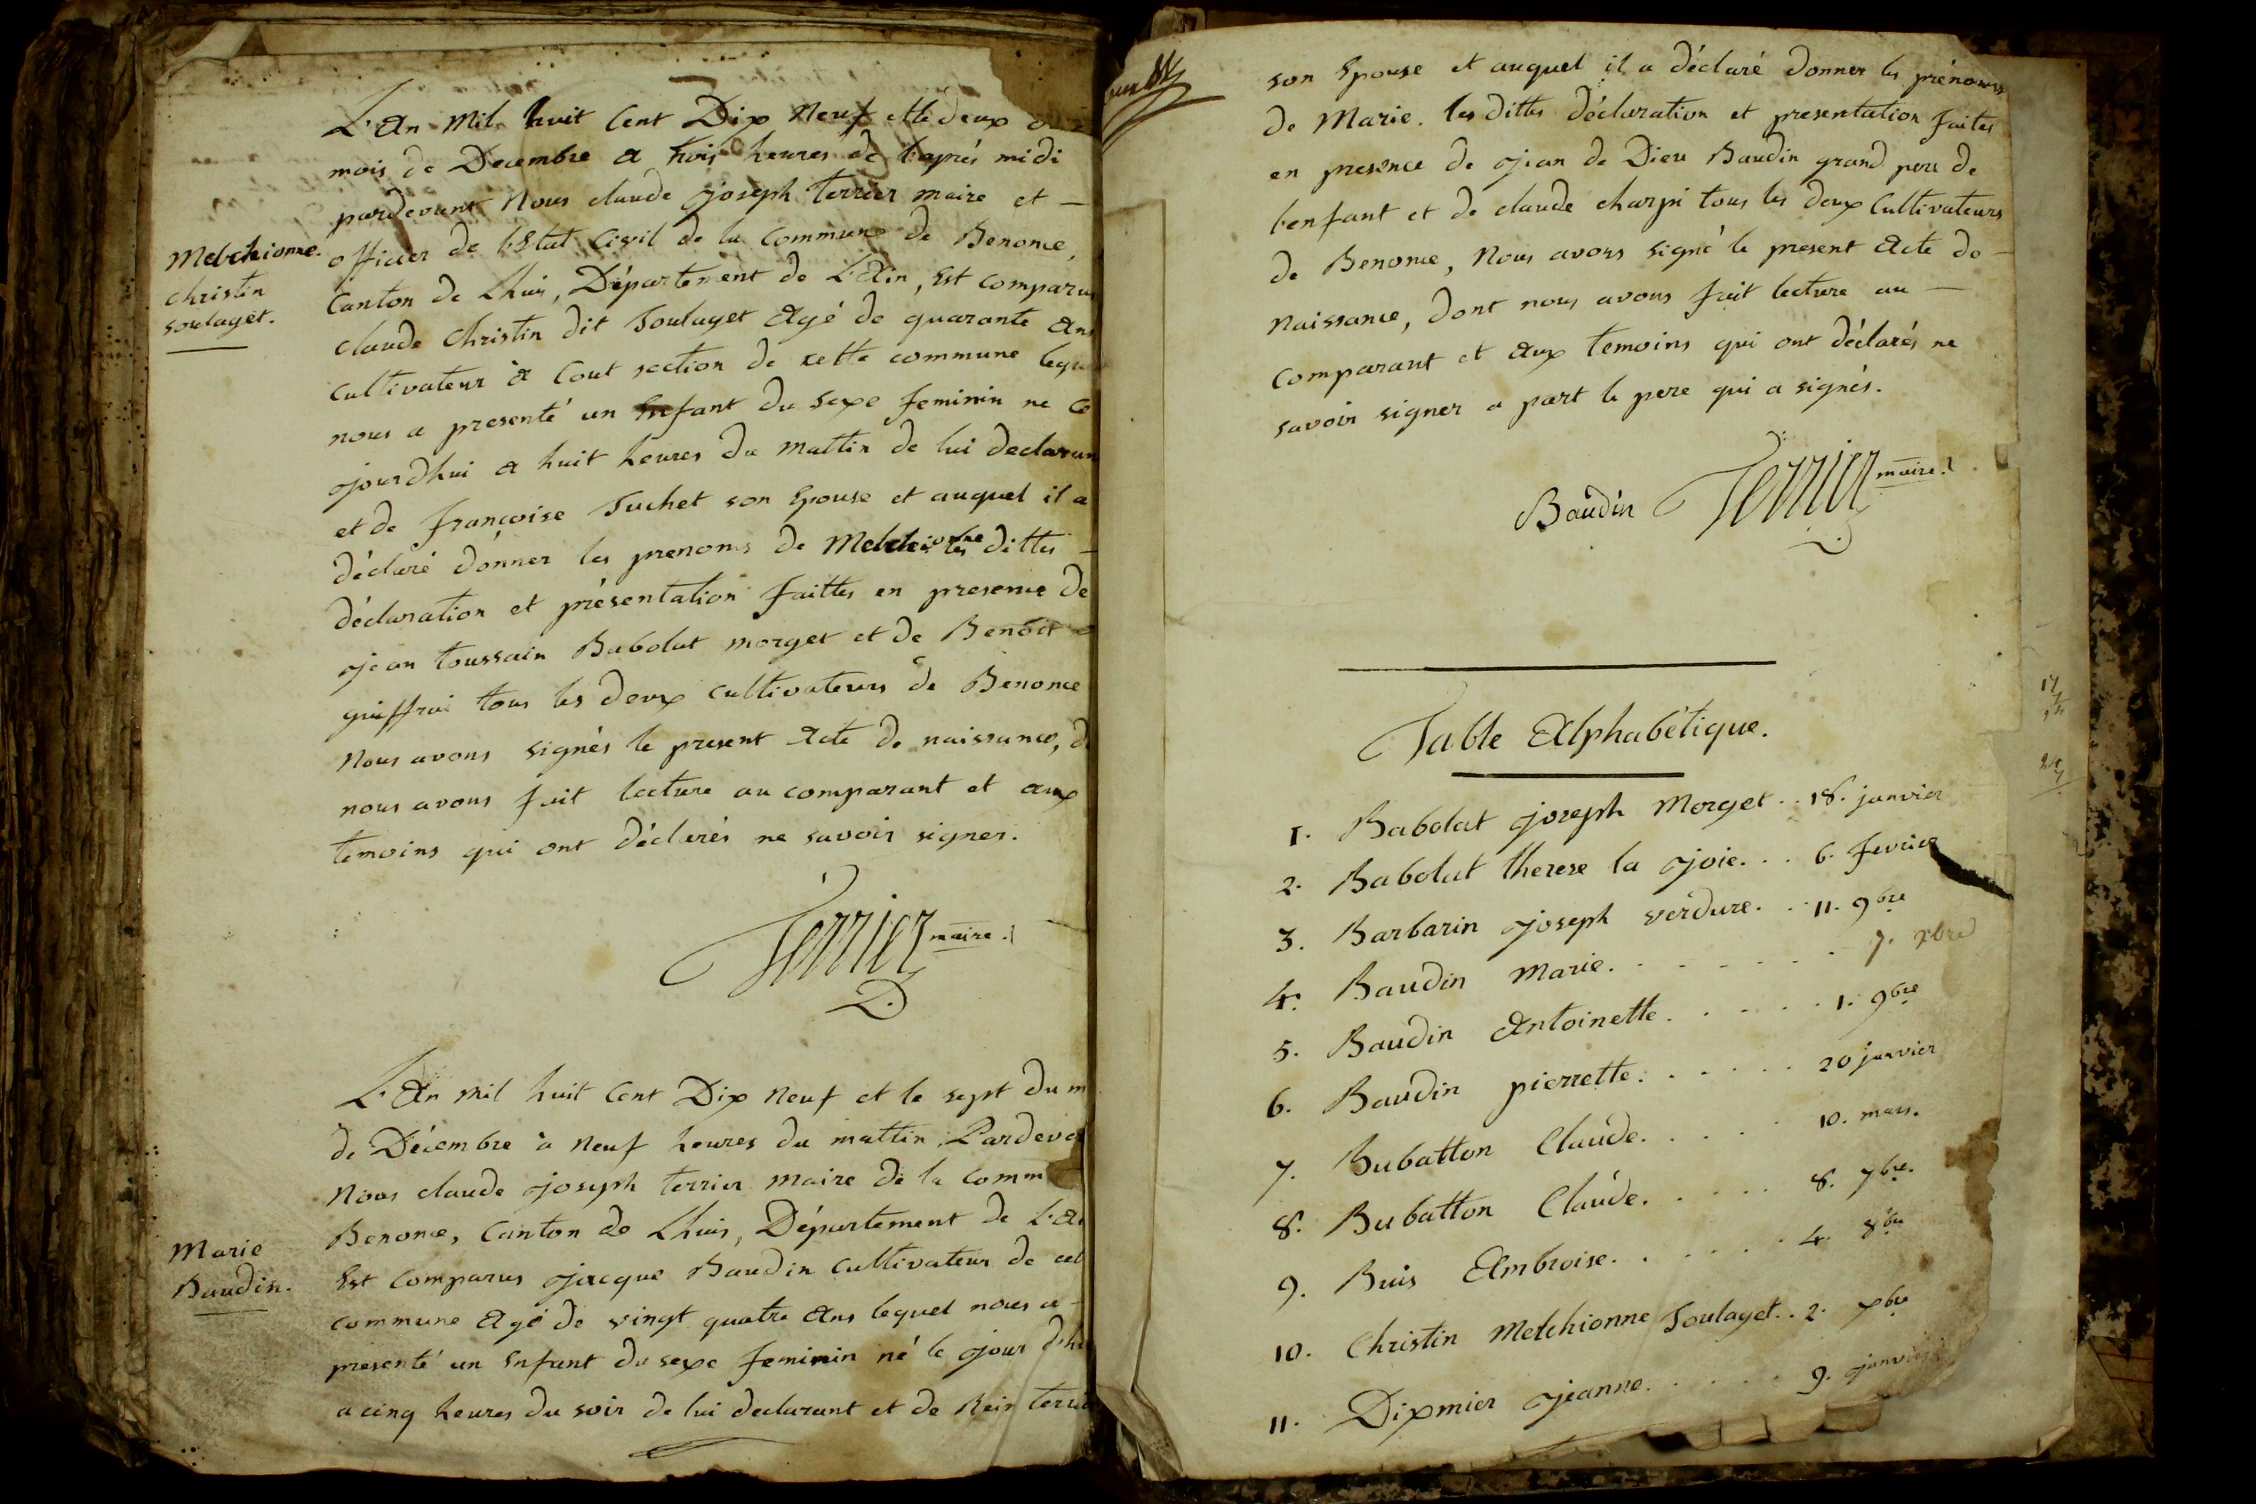 L'An Mil huit Cent Dix Neuf et le deux
mois de Decembre a trois heures de l'aprés midi
pardevant Nous claude joseph terrier maire et
Melchionne.
christin
soulaget.
officier de l'Etat Civil de la Commune de Benonce,
Canton de Lhuis, Département de L'Ain, Est comparus
claude Christin dit Soulaget Agé de quarante Ans
cultivateur à Cout section de cette commune lequ
nous a presenté un Enfant du Sexe feminin ne ce
jourdhui a huit heures du mattin de lui declarant
et de françoise Juchet son Epouse et auquel il a
déclaré donner les prenoms de Melchionne les dittes
déclaration et présentation faittes en presence De
jean toussain Babolat morget et de Benoit
guiffrai tous les deux cultivateurs de Benonce
Nous avons signés le present Acte de naissance, d
nous avons fait lecture au comparant et aux
temoins qui ont déclarés ne savoir signer.
Terrier maire.
L'An mil huit Cent Dix Neuf et le sept du m
de Décembre à Neuf heures du mattin Pardeva
Nous claude joseph terrier maire de la Comm
Benonce, Canton de Lhuis, Département de L'Ai
Marie
Baudin.
Est Comparus jacque Baudin Cultivateur de cet
commune Agé de vingt quatre Ans lequel nous a
presenté un Enfant du sexe feminin né le jour d'hi
a cinq heures du soir de lui declarant et de Rein terri
son Epouse et auquel il a déclaré donner les prénoms
de Marie. les dittes déclaration et presentation faites
en presence de jean de Dieu Baudin grand pere de
l'enfant et de claude charpi tous les deux Cultivateurs
de Benonce, Nous avons signé le present Acte de
Naissance, dont nous avons fait lecture au
Comparant et Aux temoins qui ont déclarés ne
savoir signer a part le pere qui a signés.
Baudin Terrier maire.
Table Alphabétique.
1. Babolat joseph Morget . . 18. janvier
2. Babolat therese la joie. . . 6. fevrier
3. Barbarin joseph verdure. . . 11. 9bre
4. Baudin Marie. . . . . . . 7. xbre
5. Baudin Antoinette. . . . . . 1. 9bre
6. Baudin pierrette. . . . . . 20 janvier
7. Bubatton Claude. . . . . . 10. mars.
8. Bubatton Claude. . . . . . 8. 7bre.
9. Buis Ambroise. . . . . . . 4. 8bre
10. Christin Melchionne Soulaget. . 2. xbre
11. Dixmier jeanne. . . . . . 9. janvier